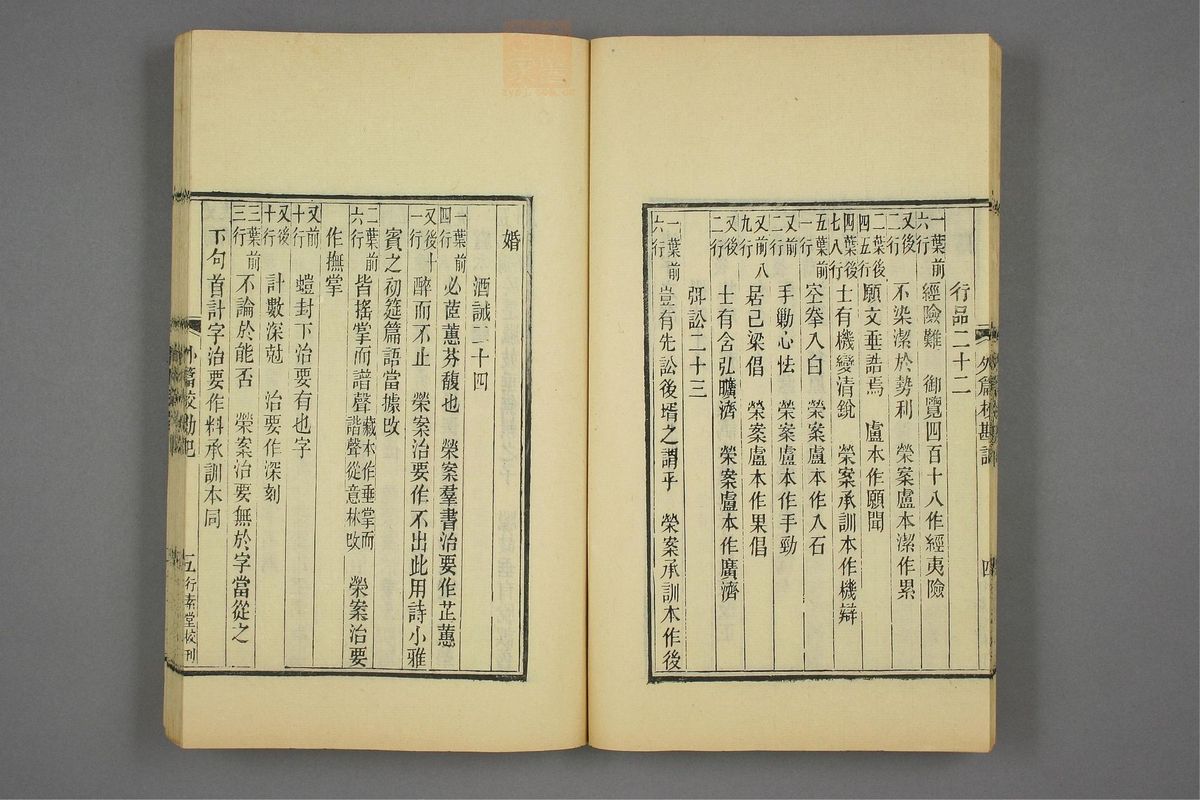 行品二十二
一葉前六行 經險難 御覽四百十八作經夷險
又後二行 不染潔於勢利 榮案盧本潔作累
二葉後四五行 願文垂誥焉 盧本作願聞
四葉後七八行 士有機變清銳 榮案承訓本作機辯
五葉前一行 空拳入白 榮案盧本作入石
又前二行 手勦心怯 榮案盧本作手勁
又前八九行 居己梁倡 榮案盧本作果倡
又後二行 士有含弘曠濟 榮案盧本作廣濟
弭訟二十三
一葉前六行 豈有先訟後壻之謂乎 榮案承訓本作後
外篇校勘記
四
婚
酒誡二十四
一葉前四行 必茝蕙芬馥也 榮案羣書治要作芷蕙
又後十一行 醉而不止 榮案治要作不出此用詩小雅
賓之初筵篇語當據改
二葉前六行 皆搖掌而譜聲 藏本作垂掌而諧聲從意林改 榮案治要
作撫掌
又前十行 螘封下治要有也字
又後十行 計數深尅 治要作深刻
三葉前三行 不論於能否 榮案治要無於字當從之
下句首計字治要作料承訓本同
外篇校勘記
五
行素堂校刊